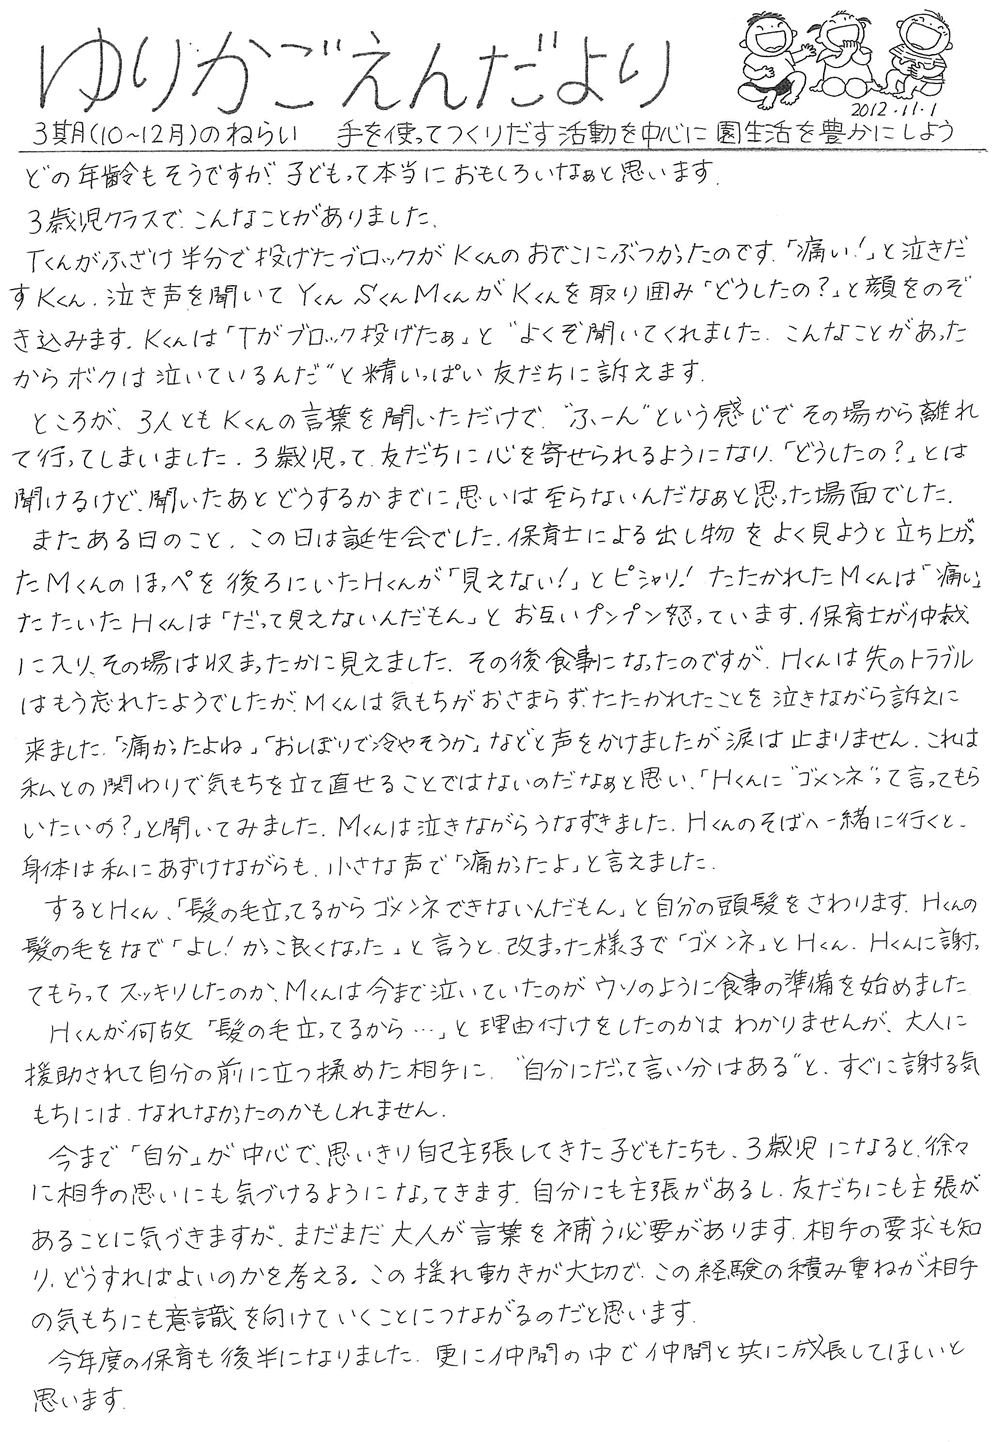 ゆりかごえんだより
2012.11.1
3期(10~12月)のねらい 手を使ってつくりだす活動を中心に園生活を豊かにしよう
どの年齢もそうですが、子どもって本当におもしろいなぁと思います。
3歳児クラスで、こんなことがありました。
Tくんがふざけ半分で投げたブロックがKくんのおでこにぶつかったのです。「痛い!」と泣きだ
すKくん。泣き声を聞いてYくんSくんMくんがKくんを取り囲み「どうしたの?」と顔をのぞ
き込みます。Kくんは「Tがブロック投げたぁ」と〝よくぞ聞いてくれました。こんなことがあった
からボクは泣いているんだ〟と精いっぱい友だちに訴えます。
ところが、3人ともKくんの言葉を聞いただけで、〝ふーん〟という感じでその場から離れ
て行ってしまいました。3歳児って、友だちに心を寄せられるようになり、「どうしたの?」とは
聞けるけど、聞いたあとどうするかまでに思いは至らないんだなぁと思った場面でした。
またある日のこと。この日は誕生会でした。保育士による出し物をよく見ようと立ち上がっ
たMくんのほっぺを後ろにいたHくんが「見えない!」とピシャリ!たたかれたMくんは「痛い」
たたいたHくんは「だって見えないんだもん」とお互いプンプン怒っています。保育士が仲裁
に入り、その場は収まったかに見えました。その後食事になったのですが、Hくんは先のトラブル
はもう忘れたようでしたが、Mくんは気もちがおさまらず、たたかれたことを泣きながら訴えに
来ました。「痛かったよね」「おしぼりで冷やそうか」などと声をかけましたが涙は止まりません。これは
私との関わりで気もちを立て直せることではないのだなぁと思い、「Hくんに〝ゴメンネ〟って言ってもら
いたいの?」と聞いてみました。Mくんは泣きながらうなずきました。Hくんのそばへ一緒に行くと、
身体は私にあずけながらも、小さな声で「痛かったよ」と言えました。
するとHくん、「髪の毛立ってるからゴメンネできないんだもん」と自分の頭髪をさわります。Hくんの
髪の毛をなで「よし!かっこ良くなった」と言うと、改まった様子で「ゴメンネ」とHくん。Hくんに謝っ
てもらってスッキリしたのか、Mくんは今まで泣いていたのがウソのように食事の準備を始めました。
Hくんが何故「髪の毛立ってるから…」と理由付けをしたのかはわかりませんが、大人に
援助されて自分の前に立つ揉めた相手に、〝自分にだって言い分はある〟と、すぐに謝る気
もちには、なれなかったのかもしれません。
今まで「自分」が中心で、思いきり自己主張してきた子どもたちも、3歳児になると、徐々
に相手の思いにも気づけるようになってきます。自分にも主張があるし、友だちにも主張が
あることに気づきますが、まだまだ大人が言葉を補う必要があります。相手の要求も知
り、どうすればよいのかを考える。この揺れ動きが大切で、この経験の積み重ねが相手
の気もちにも意識を向けていくことにつながるのだと思います。
今年度の保育も後半になりました。更に仲間の中で仲間と共に成長してほしいと
思います。